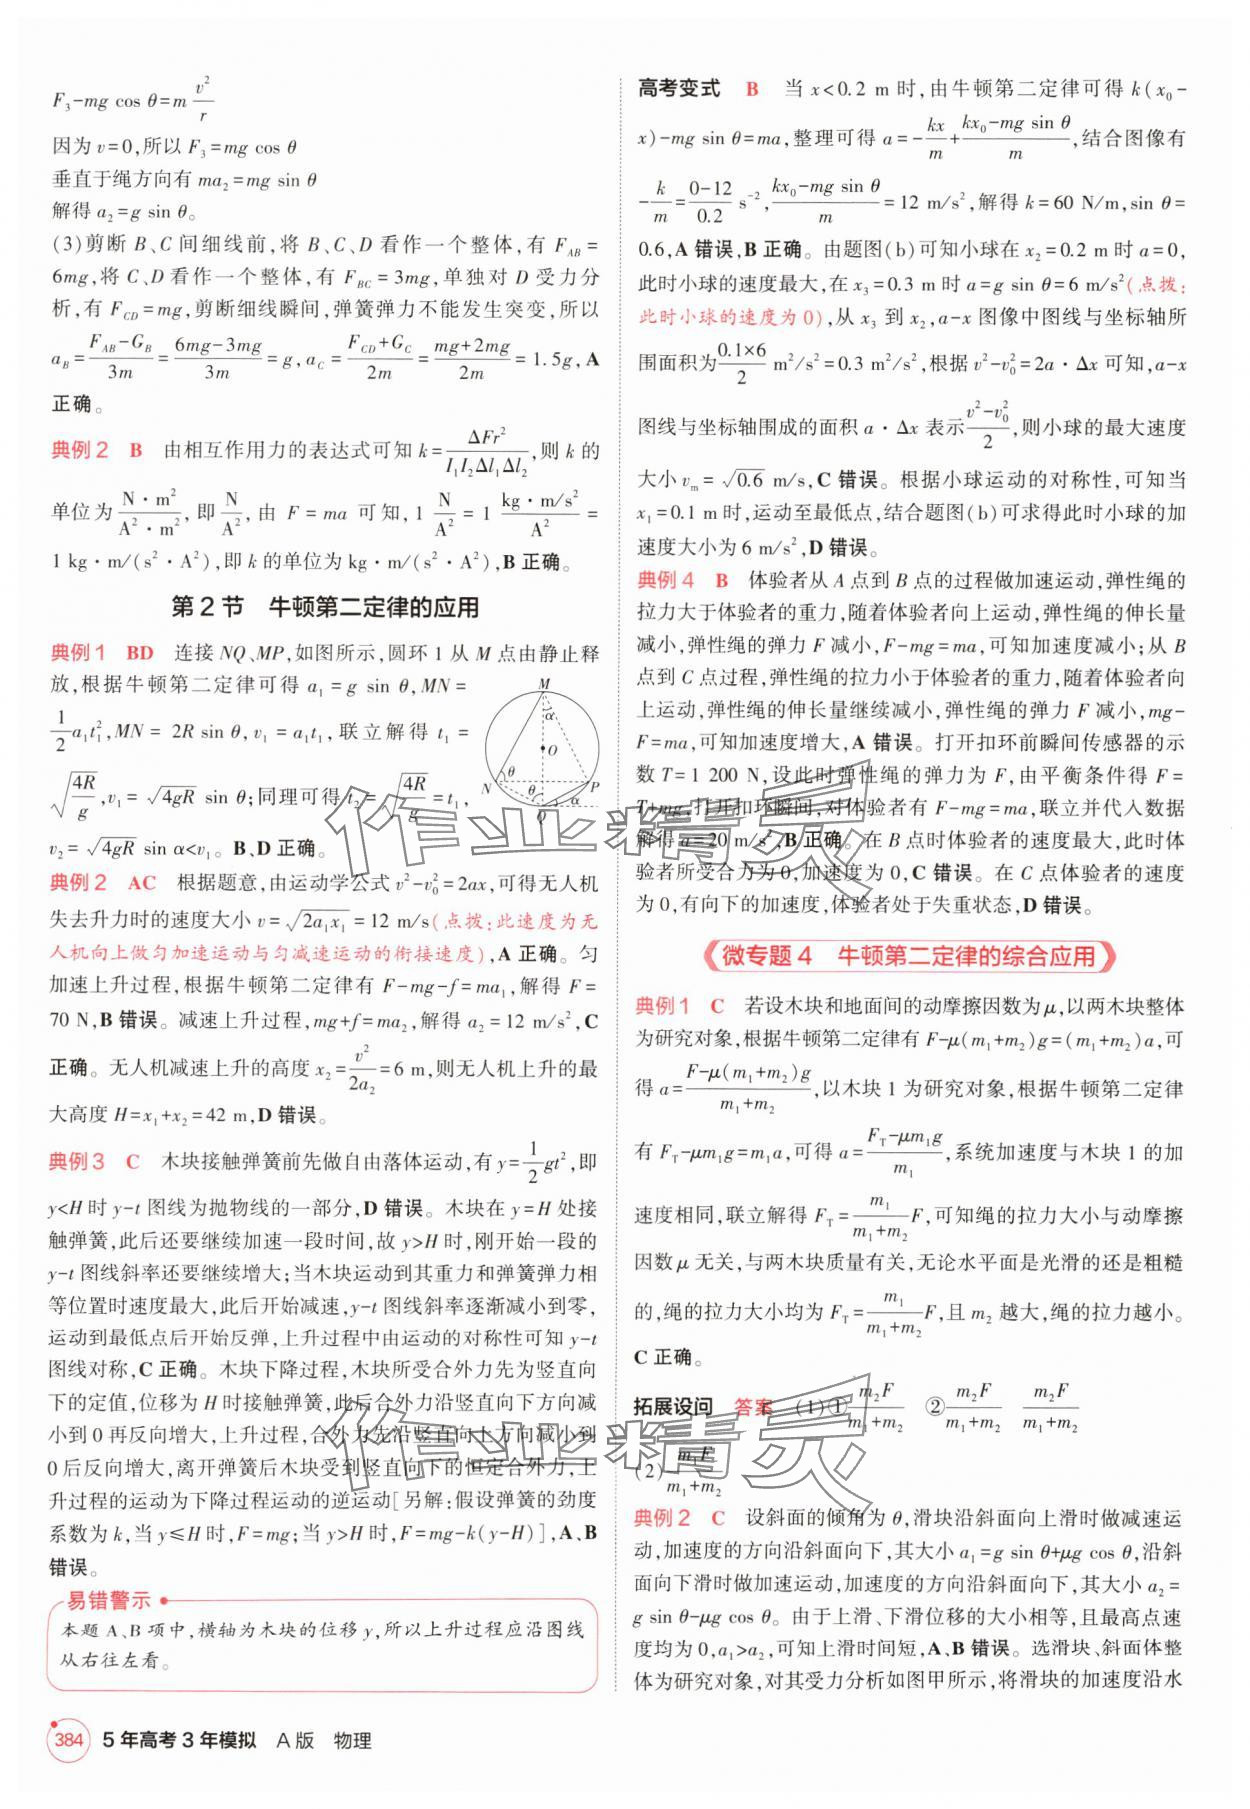 F₃-mg cos θ=m v²/r
因为 v=0,所以 F₃=mg cos θ
垂直于绳方向有 ma₂=mg sin θ
解得 a₂=g sin θ。
(3)剪断 B、C 间细线前,将 B、C、D 看作一个整体,有 F_AB=
6mg,将 C、D 看作一个整体,有 F_BC=3mg,单独对 D 受力分
析,有 F_CD=mg,剪断细线瞬间,弹簧弹力不能发生突变,所以
a_B=(F_AB-G_B)/3m=(6mg-3mg)/3m=g,a_C=(F_CD+G_C)/2m=(mg+2mg)/2m=1.5g,A
正确。
典例2 B 由相互作用力的表达式可知 k=ΔFr²/(I₁I₂Δl₁Δl₂),则 k 的
单位为 N·m²/(A²·m²),即 N/A²,由 F=ma 可知,1 N/A²=1 kg·m/s²/A²=
1 kg·m/(s²·A²),即 k 的单位为 kg·m/(s²·A²),B 正确。
第2节 牛顿第二定律的应用
典例1 BD 连接 NQ、MP,如图所示,圆环 1 从 M 点由静止释
放,根据牛顿第二定律可得 a₁=g sin θ,MN=
1/2 a₁t₁²,MN=2R sin θ,v₁=a₁t₁,联立解得 t₁=
√(4R/g),v₁=√(4gR) sin θ;同理可得 t₂=√(4R/g)=t₁,
v₂=√(4gR) sin α<v₁。B、D 正确。
M
α
O
N
θ
P
θ
α
Q
典例2 AC 根据题意,由运动学公式 v²-v₀²=2ax,可得无人机
失去升力时的速度大小 v=√(2a₁x₁)=12 m/s(点拨:此速度为无
人机向上做匀加速运动与匀减速运动的衔接速度),A 正确。匀
加速上升过程,根据牛顿第二定律有 F-mg-f=ma₁,解得 F=
70 N,B 错误。减速上升过程,mg+f=ma₂,解得 a₂=12 m/s²,C
正确。无人机减速上升的高度 x₂=v²/2a₂=6 m,则无人机上升的最
大高度 H=x₁+x₂=42 m,D 错误。
典例3 C 木块接触弹簧前先做自由落体运动,有 y=1/2 gt²,即
y<H 时 y-t 图线为抛物线的一部分,D 错误。木块在 y=H 处接
触弹簧,此后还要继续加速一段时间,故 y>H 时,刚开始一段的
y-t 图线斜率还要继续增大;当木块运动到其重力和弹簧弹力相
等位置时速度最大,此后开始减速,y-t 图线斜率逐渐减小到零,
运动到最低点后开始反弹,上升过程中由运动的对称性可知 y-t
图线对称,C 正确。木块下降过程,木块所受合外力先为竖直向
下的定值,位移为 H 时接触弹簧,此后合外力沿竖直向下方向减
小到 0 再反向增大,上升过程,合外力先沿竖直向上方向减小到
0 后反向增大,离开弹簧后木块受到竖直向下的恒定合外力,上
升过程的运动为下降过程运动的逆运动[另解:假设弹簧的劲度
系数为 k,当 y≤H 时,F=mg;当 y>H 时,F=mg-k(y-H)],A、B
错误。
易错警示
本题 A、B 项中,横轴为木块的位移 y,所以上升过程应沿图线
从右往左看。
384 5年高考3年模拟 A版 物理
高考变式 B 当 x<0.2 m 时,由牛顿第二定律可得 k(x₀-
x)-mg sin θ=ma,整理可得 a=-kx/m+(kx₀-mg sin θ)/m,结合图像有
-k/m=(0-12)/0.2 s⁻²,(kx₀-mg sin θ)/m=12 m/s²,解得 k=60 N/m,sin θ=
0.6,A 错误,B 正确。由题图(b)可知小球在 x₂=0.2 m 时 a=0,
此时小球的速度最大,在 x₃=0.3 m 时 a=g sin θ=6 m/s²(点拨:
此时小球的速度为 0),从 x₃ 到 x₂,a-x 图像中图线与坐标轴所
围面积为 0.1×6/2 m²/s²=0.3 m²/s²,根据 v²-v₀²=2a·Δx 可知,a-x
图线与坐标轴围成的面积 a·Δx 表示 (v²-v₀²)/2,则小球的最大速度
大小 v_m=√0.6 m/s,C 错误。根据小球运动的对称性,可知当
x₁=0.1 m 时,运动至最低点,结合题图(b)可求得此时小球的加
速度大小为 6 m/s²,D 错误。
典例4 B 体验者从 A 点到 B 点的过程做加速运动,弹性绳的
拉力大于体验者的重力,随着体验者向上运动,弹性绳的伸长量
减小,弹性绳的弹力 F 减小,F-mg=ma,可知加速度减小;从 B
点到 C 点过程,弹性绳的拉力小于体验者的重力,随着体验者向
上运动,弹性绳的伸长量继续减小,弹性绳的弹力 F 减小,mg-
F=ma,可知加速度增大,A 错误。打开扣环前瞬间传感器的示
数 T=1 200 N,设此时弹性绳的弹力为 F,由平衡条件得 F=
T+mg,打开扣环瞬间,对体验者有 F-mg=ma,联立并代入数据
解得 a=20 m/s²,B 正确。在 B 点时体验者的速度最大,此时体
验者所受合力为 0,加速度为 0,C 错误。在 C 点体验者的速度
为 0,有向下的加速度,体验者处于失重状态,D 错误。
微专题4 牛顿第二定律的综合应用
典例1 C 若设木块和地面间的动摩擦因数为 μ,以两木块整体
为研究对象,根据牛顿第二定律有 F-μ(m₁+m₂)g=(m₁+m₂)a,可
得 a=(F-μ(m₁+m₂)g)/(m₁+m₂),以木块 1 为研究对象,根据牛顿第二定律
有 F_T-μm₁g=m₁a,可得 a=(F_T-μm₁g)/m₁,系统加速度与木块 1 的加
速度相同,联立解得 F_T=m₁/(m₁+m₂) F,可知绳的拉力大小与动摩擦
因数 μ 无关,与两木块质量有关,无论水平面是光滑的还是粗糙
的,绳的拉力大小均为 F_T=m₁/(m₁+m₂) F,且 m₂ 越大,绳的拉力越小。
C 正确。
拓展设问 答案 (1)①m₂F/(m₁+m₂) ②m₂F/(m₁+m₂) m₂F/(m₁+m₂)
(2)m₁F/(m₁+m₂)
典例2 C 设斜面的倾角为 θ,滑块沿斜面向上滑时做减速运
动,加速度的方向沿斜面向下,其大小 a₁=g sin θ+μg cos θ,沿斜
面向下滑时做加速运动,加速度的方向沿斜面向下,其大小 a₂=
g sin θ-μg cos θ。由于上滑、下滑位移的大小相等,且最高点速
度均为 0,a₁>a₂,可知上滑时间短,A、B 错误。选滑块、斜面体整
体为研究对象,对其受力分析如图甲所示,将滑块的加速度沿水
作业精灵
作业精灵